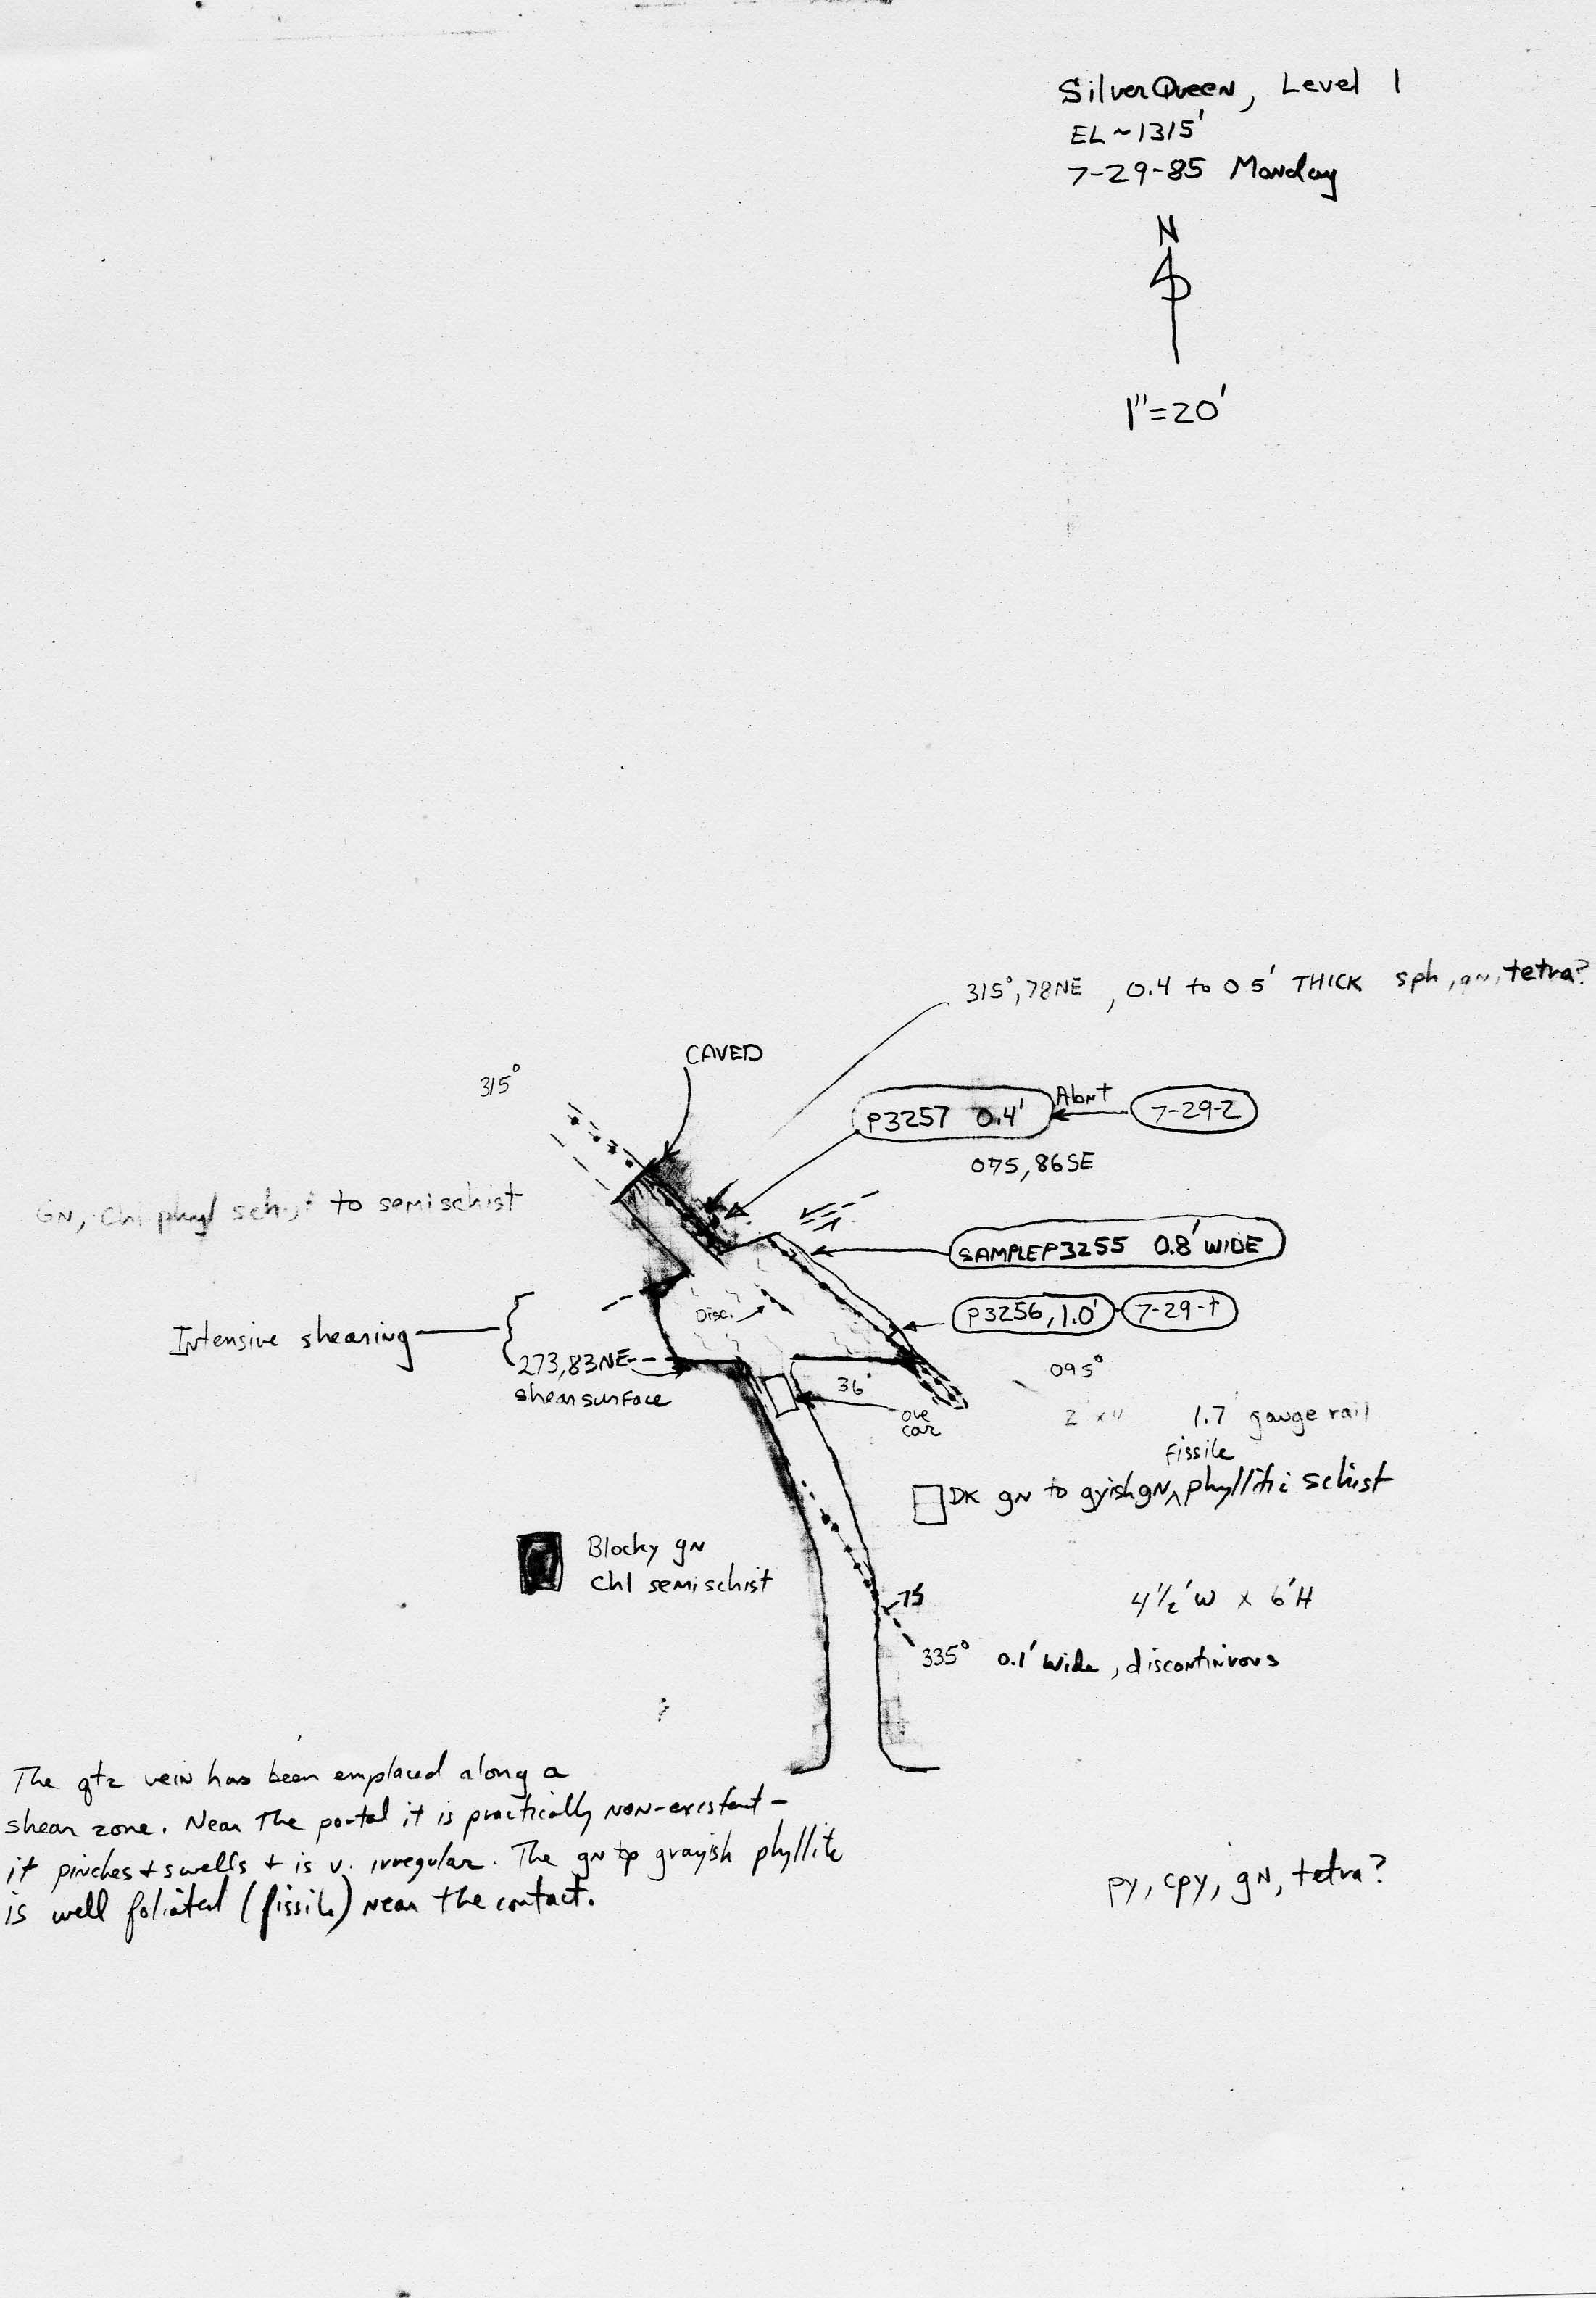 SilverQueen, Level 1
EL ~ 1315'
7-29-85 Monday
N
1"=20'
315°, 78NE, 0.4 to 0 5' THICK sph, gn, tetra?
CAVED
315°
P3257 0.4'
7-29-2
075, 86SE
GN, Chl phyl schist to semischist
SAMPLE P3255 0.8' WIDE
Disc.
P3256, 1.0'
Intensive shearing
273, 83NE
shear surface
095°
36°
ore
car
1.7' gauge rail
fissile
DK gN to gyish gN ^ phyllitic schist
Blocky gN
Chl semischist
75
4 1/2' W x 6' H
335° 0.1' wide, discontinuous
?
The qtz vein has been emplaced along a
shear zone. Near the portal it is practically NON-existent -
it pinches + swells + is v. irregular. The gn to grayish phyllite
is well foliated (fissile) near the contact.
py, cpy, gN, tetra?